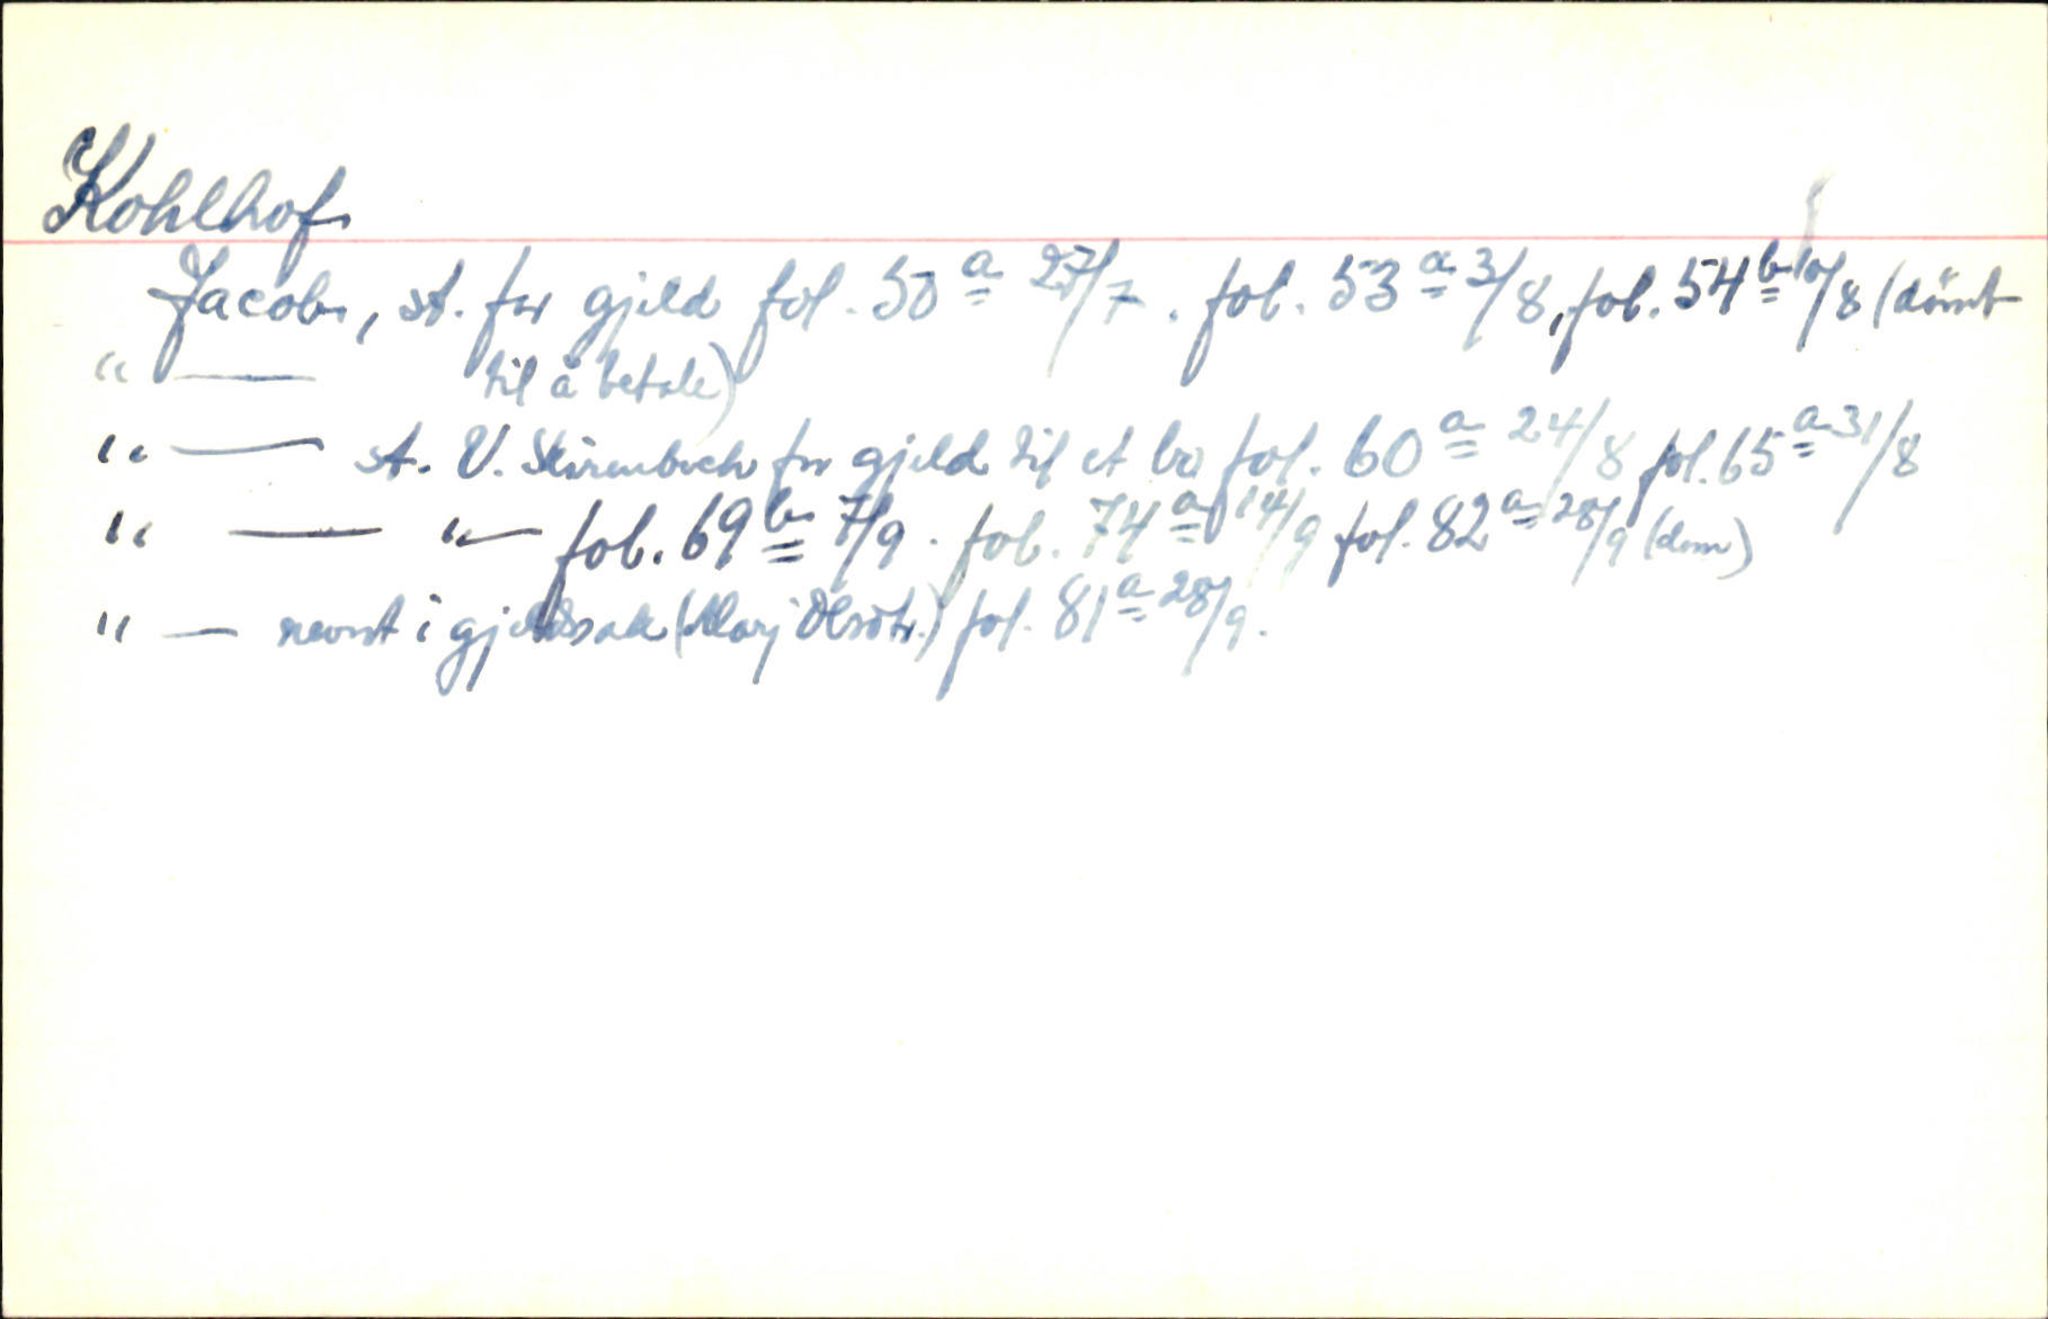 Kohlhof
Jacob, st. for gjeld fol. 50 a 27/7. fol. 53 a 3/8, fol. 54 b 10/8 (dömt
" — til å betale)
" — st. V. for gjeld til et bo fol. 60 a 24/8 fol. 65 a 31/8
" — " — fol. 69 b 7/9. fol. 74 a 14/9 fol. 82 a 28/9 (dom)
" — nevnt i gjeldssak (Marj Olsdtr.) fol. 81 a 28/9.